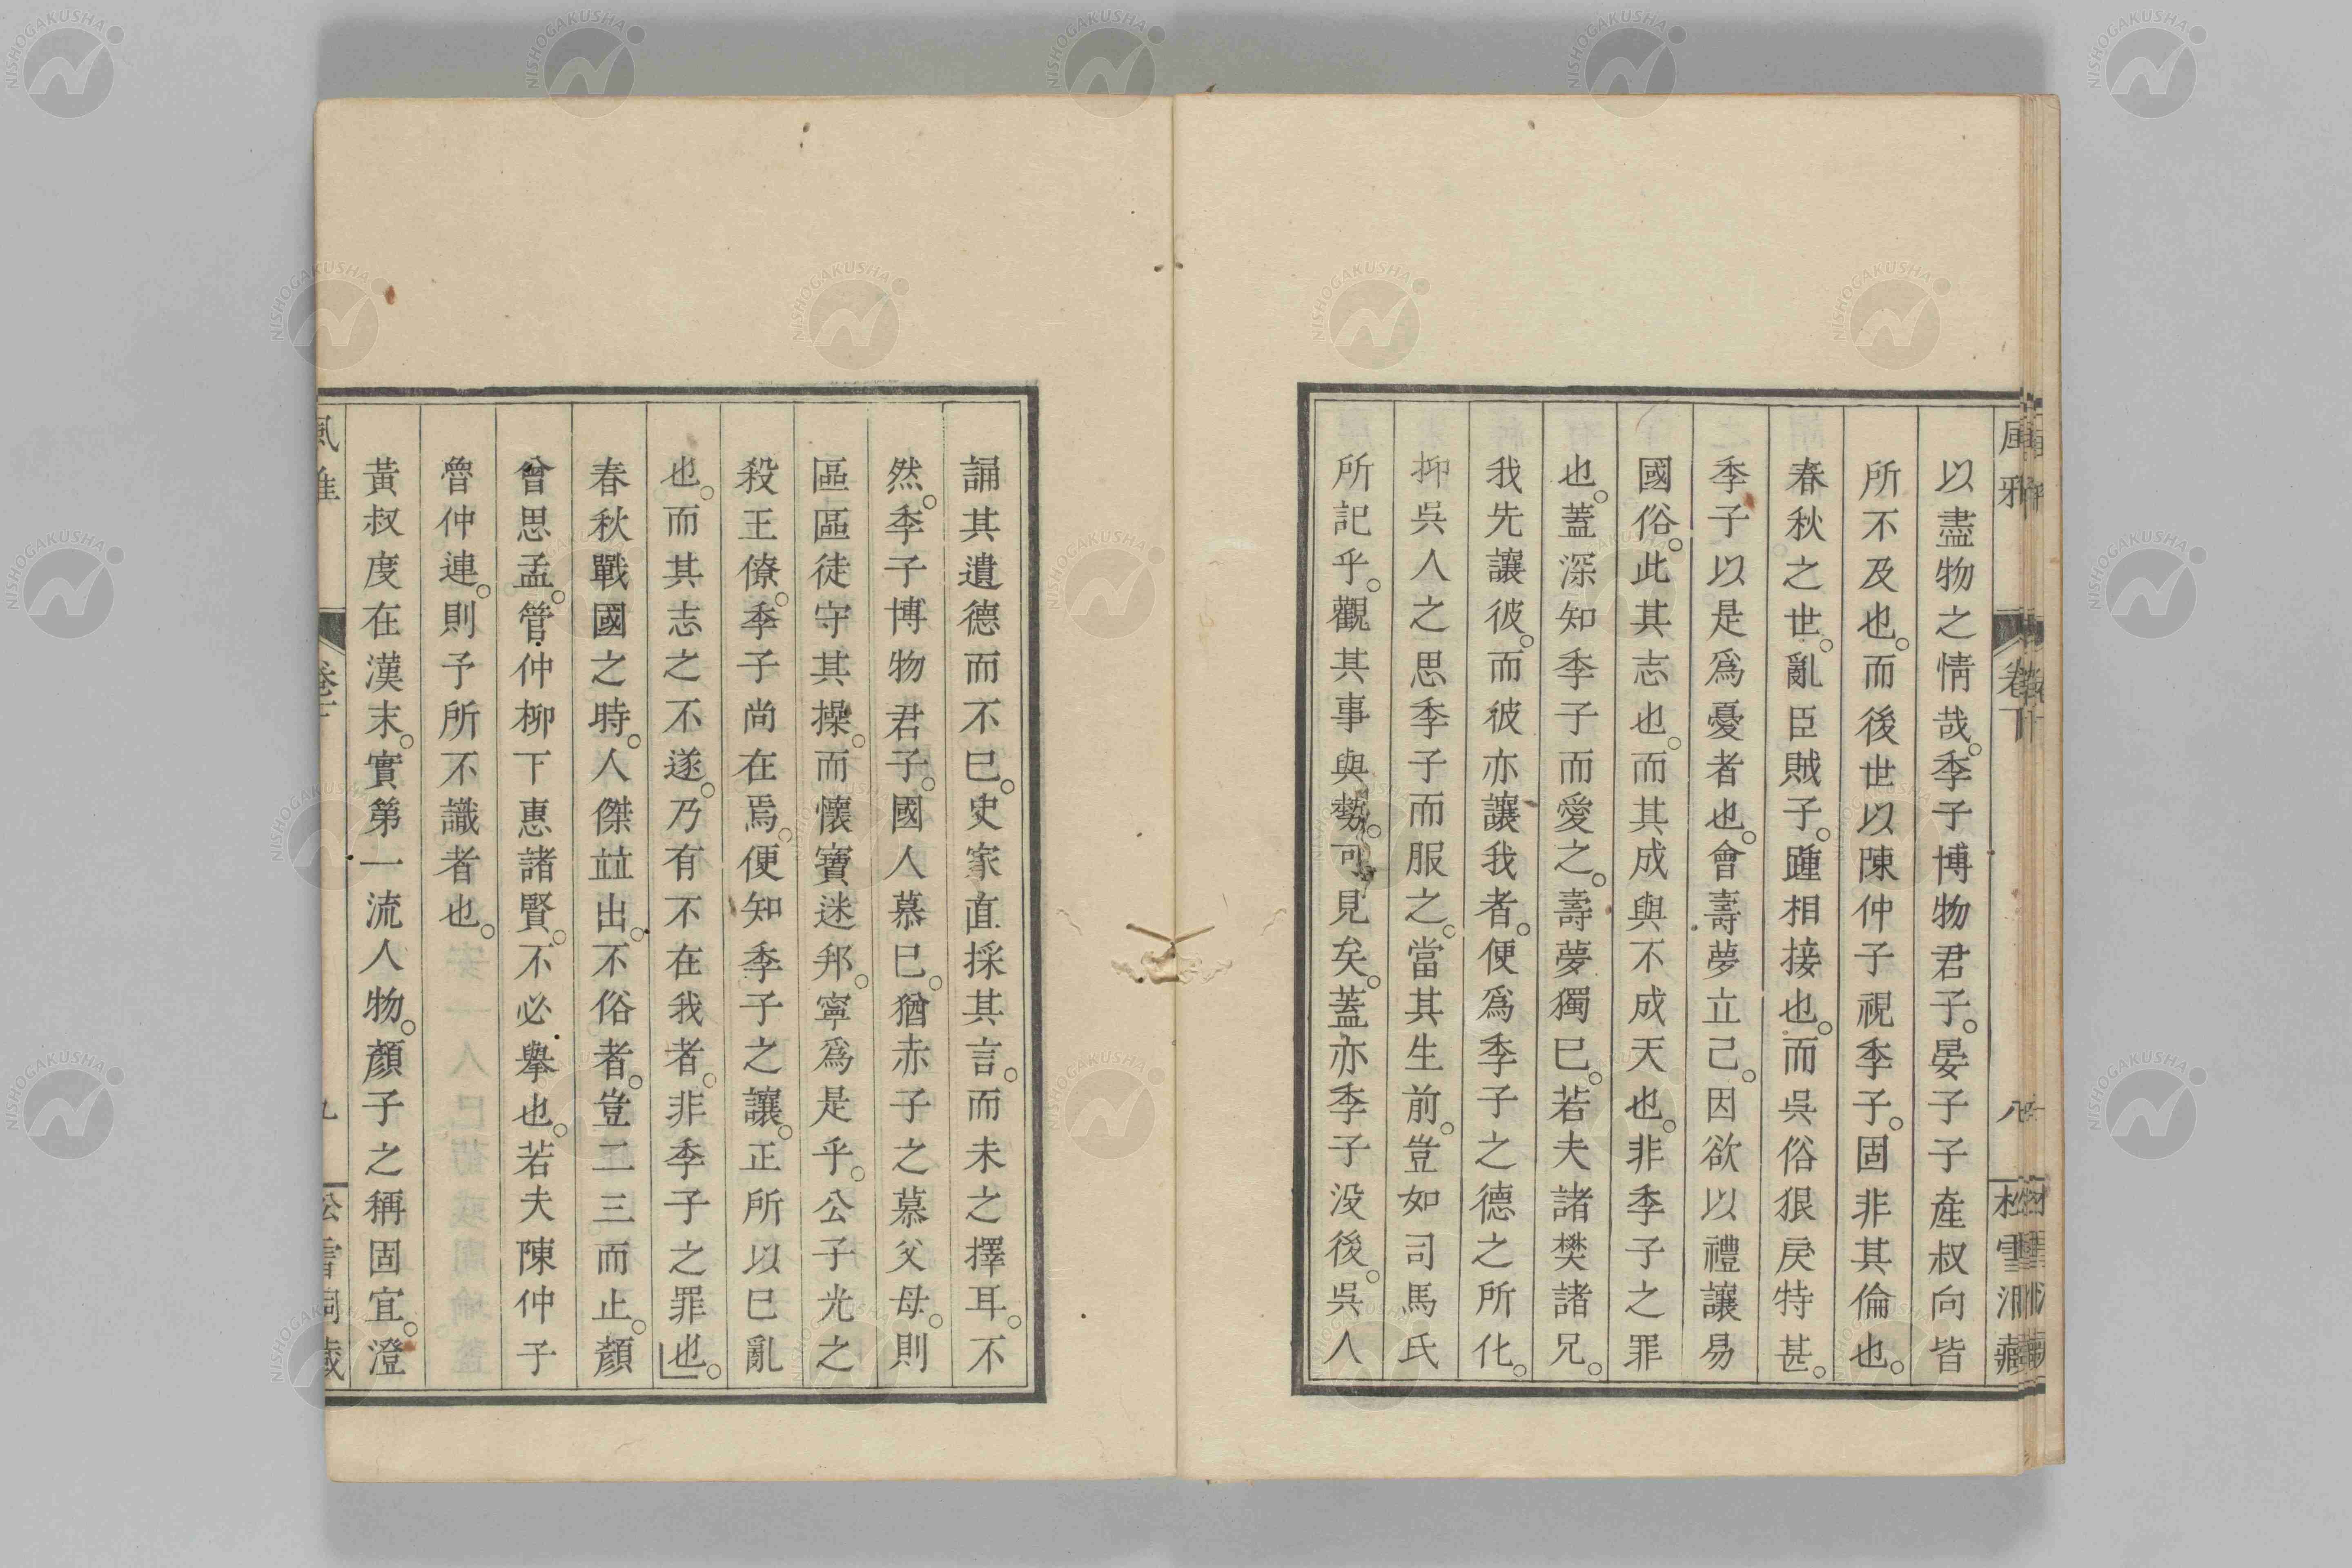 以盡物之情哉。季子博物君子。晏子子產叔向皆
所不及也。而後世以陳仲子視季子。固非其倫也。
春秋之世。亂臣賊子。踵相接也。而吳俗狠戾特甚。
季子以是爲憂者也。會壽夢立己。因欲以禮讓易
國俗。此其志也。而其成與不成天也。非季子之罪
也。蓋深知季子而愛之。壽夢獨巳。若夫諸樊諸兄。
我先讓彼。而彼亦讓我者。便爲季子之德之所化。
抑吳人之思季子而服之。當其生前。豈如司馬氏
所記乎。觀其事與勢。可見矣。蓋亦季子没後。吳人
誦其遺德而不巳。史家直採其言。而未之擇耳。不
然。季子博物君子。國人慕巳。猶赤子之慕父母。則
區區徒守其操。而懷寶迷邦。寧爲是乎。公子光之
殺王僚。季子尚在焉。便知季子之讓。正所以巳亂
也。而其志之不遂。乃有不在我者。非季子之罪也。
春秋戰國之時。人傑竝出。不俗者。豈二三而止。顏
曾思孟。管仲柳下惠諸賢。不必舉也。若夫陳仲子
魯仲連。則予所不識者也。
黃叔度在漢末。實第一流人物。顏子之稱固宜。澄
NISHOGAKUSHA